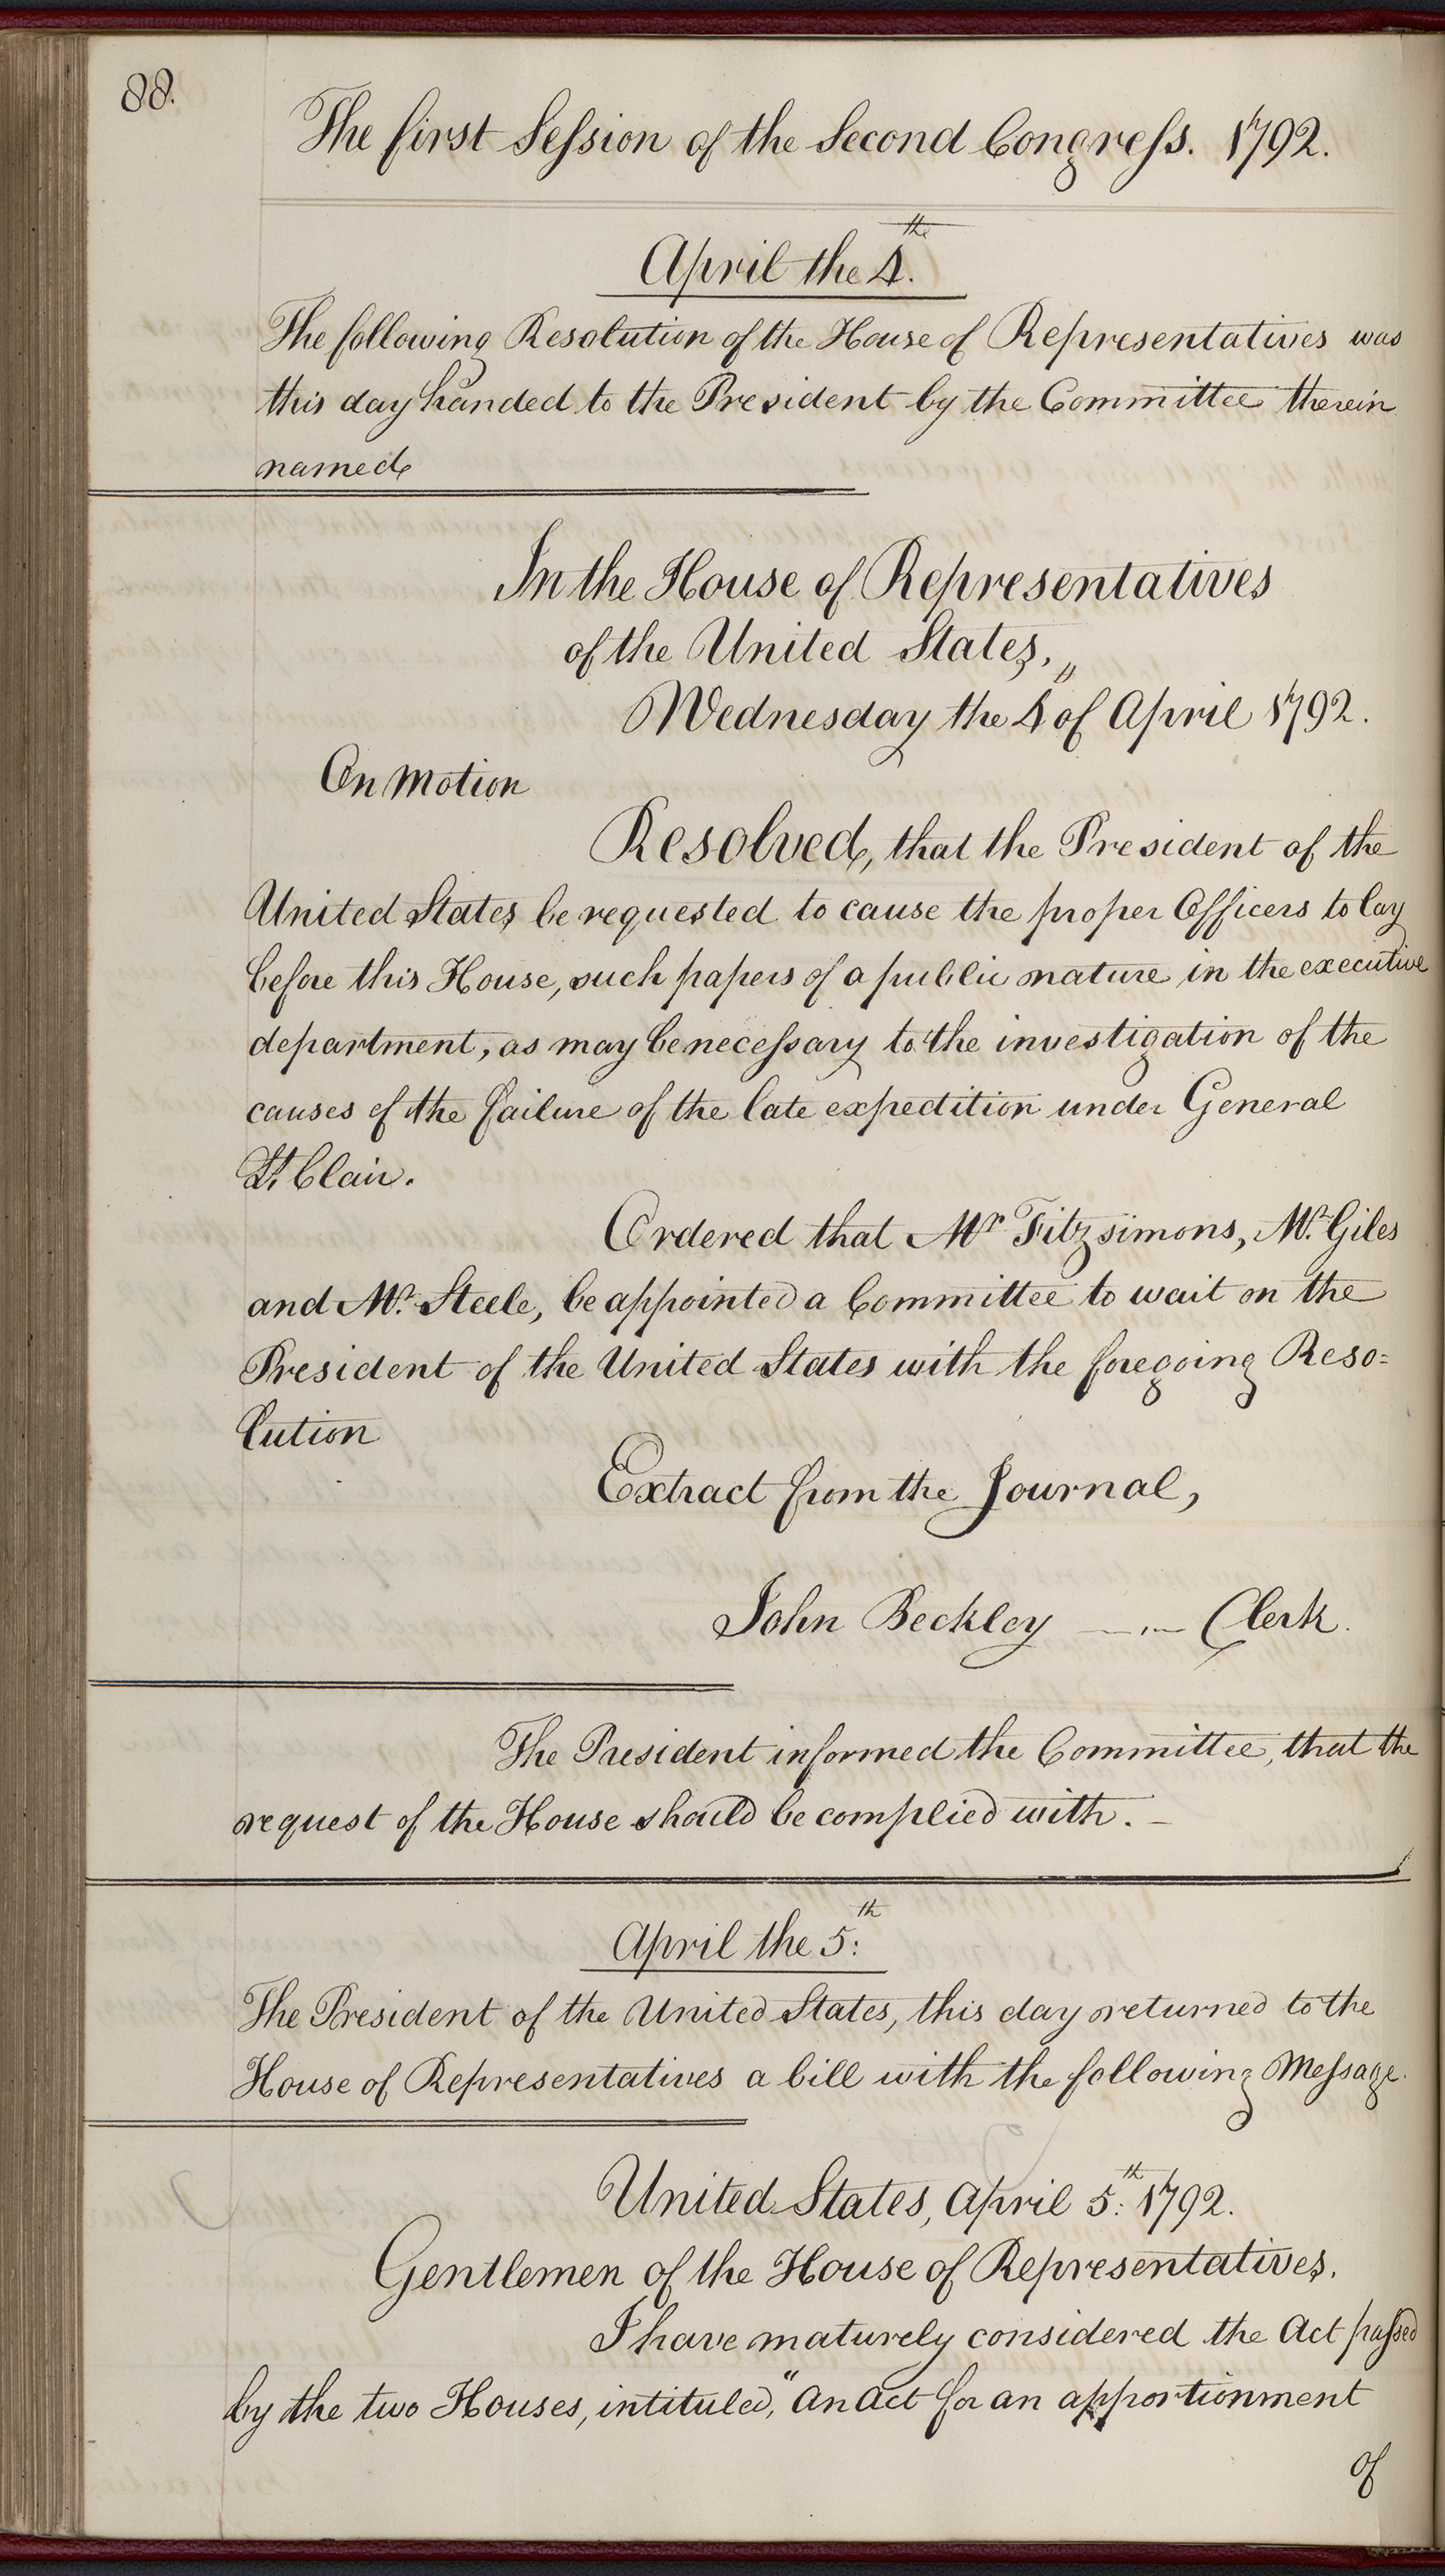 88.
The first Seſsion of the Second Congreſs. 1792.
April the 4.th
The following Resolution of the House of Representatives was
this day handed to the President by the Committee therein
named
In the House of Representatives
of the United States,
Wednesday the 4 of April 1792.
On Motion
Resolved, that the President of the
United States be requested to cause the proper Officers to lay
before this House, such papers of a public nature in the executive
department, as may be neceſsary to the investigation of the
causes of the failure of the late expedition under General
St. Clair.
Ordered that Mr Fitzsimons, Mr. Giles
and Mr. Steele, be appointed a Committee to wait on the
President of the United States with the foregoing Reso=
lution
Extract from the Journal,
John Beckley —.— Clerk.
The President informed the Committee, that the
request of the House should be complied with. —
April the 5:th
The President of the United States, this day returned to the
House of Representatives a bill with the following Meſsage.
United States, April 5:th 1792.
Gentlemen of the House of Representatives.
I have maturely considered the Act paſsed
by the two Houses, intituled, "An Act for an apportionment
of